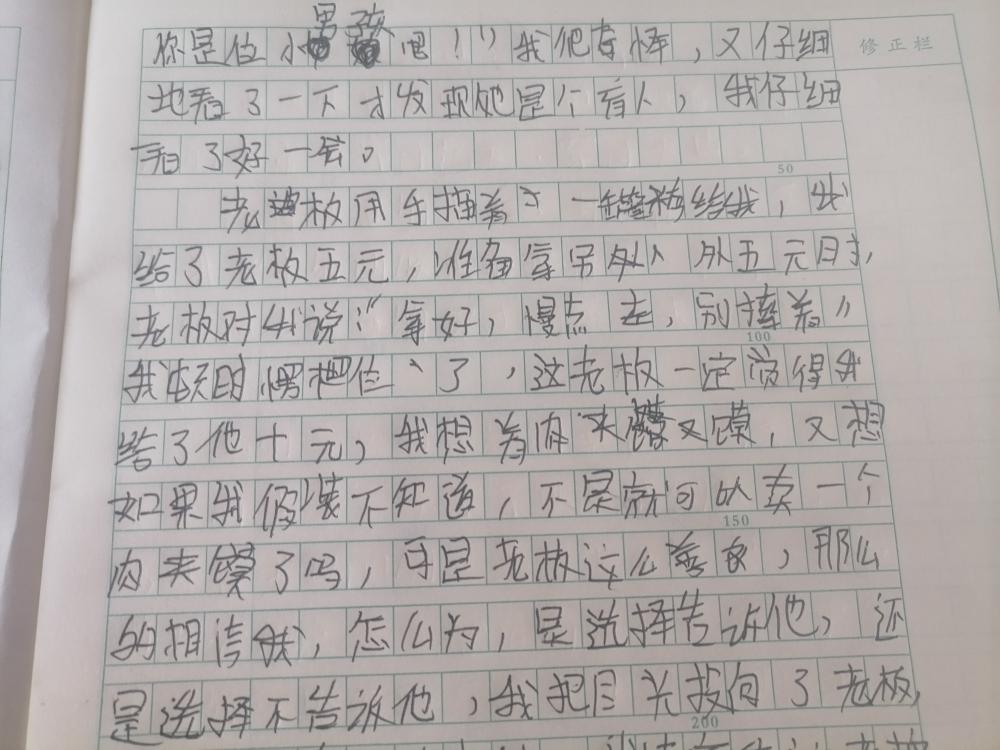 你是位小男孩吧！”我很奇怪，又仔细
修正栏
地看了一下才发现他是个盲人，我仔细
看了好一会。
50
老板用手捧着一罐粥给我，我
给了老板五元，准备拿另外五元时，
老板对我说：“拿好，慢点走，别摔着”
100
我顿时愣住了，这老板一定觉得我
给了他十元，我想着肉夹馍又馍，又想
如果我假装不知道，不是就可以卖一个
150
肉夹馍了吗，可是老板这么善良，那么
的相信我，怎么为，是选择告诉他，还
是选择不告诉他，我把目光投向了老板，
200